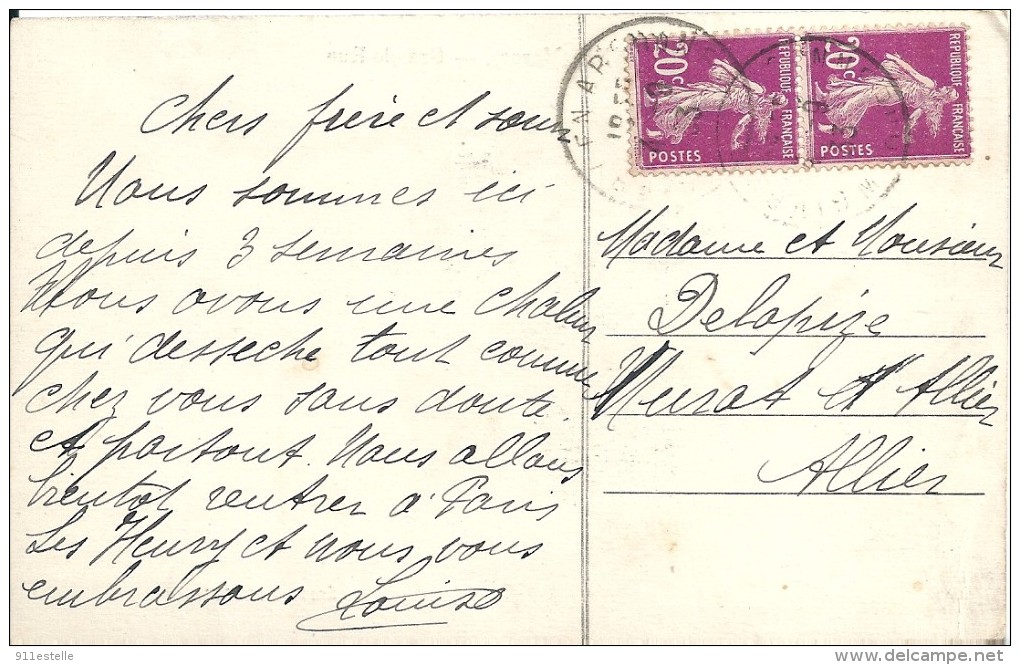 Chers frère et sœur
Nous sommes ici
depuis 3 semaines
Nous avons une chaleur
qui dessèche tout comme
chez vous sans doute
et partout. Nous allons
bientot rentrer à Paris
Les Henry et nous vous
embrassons Louise
20c
REPUBLIQUE FRANÇAISE
POSTES
20c
REPUBLIQUE FRANÇAISE
POSTES
Madame et Monsieur
Delapize
Murat d'Allier
Allier
911estelle
www.delcampe.net